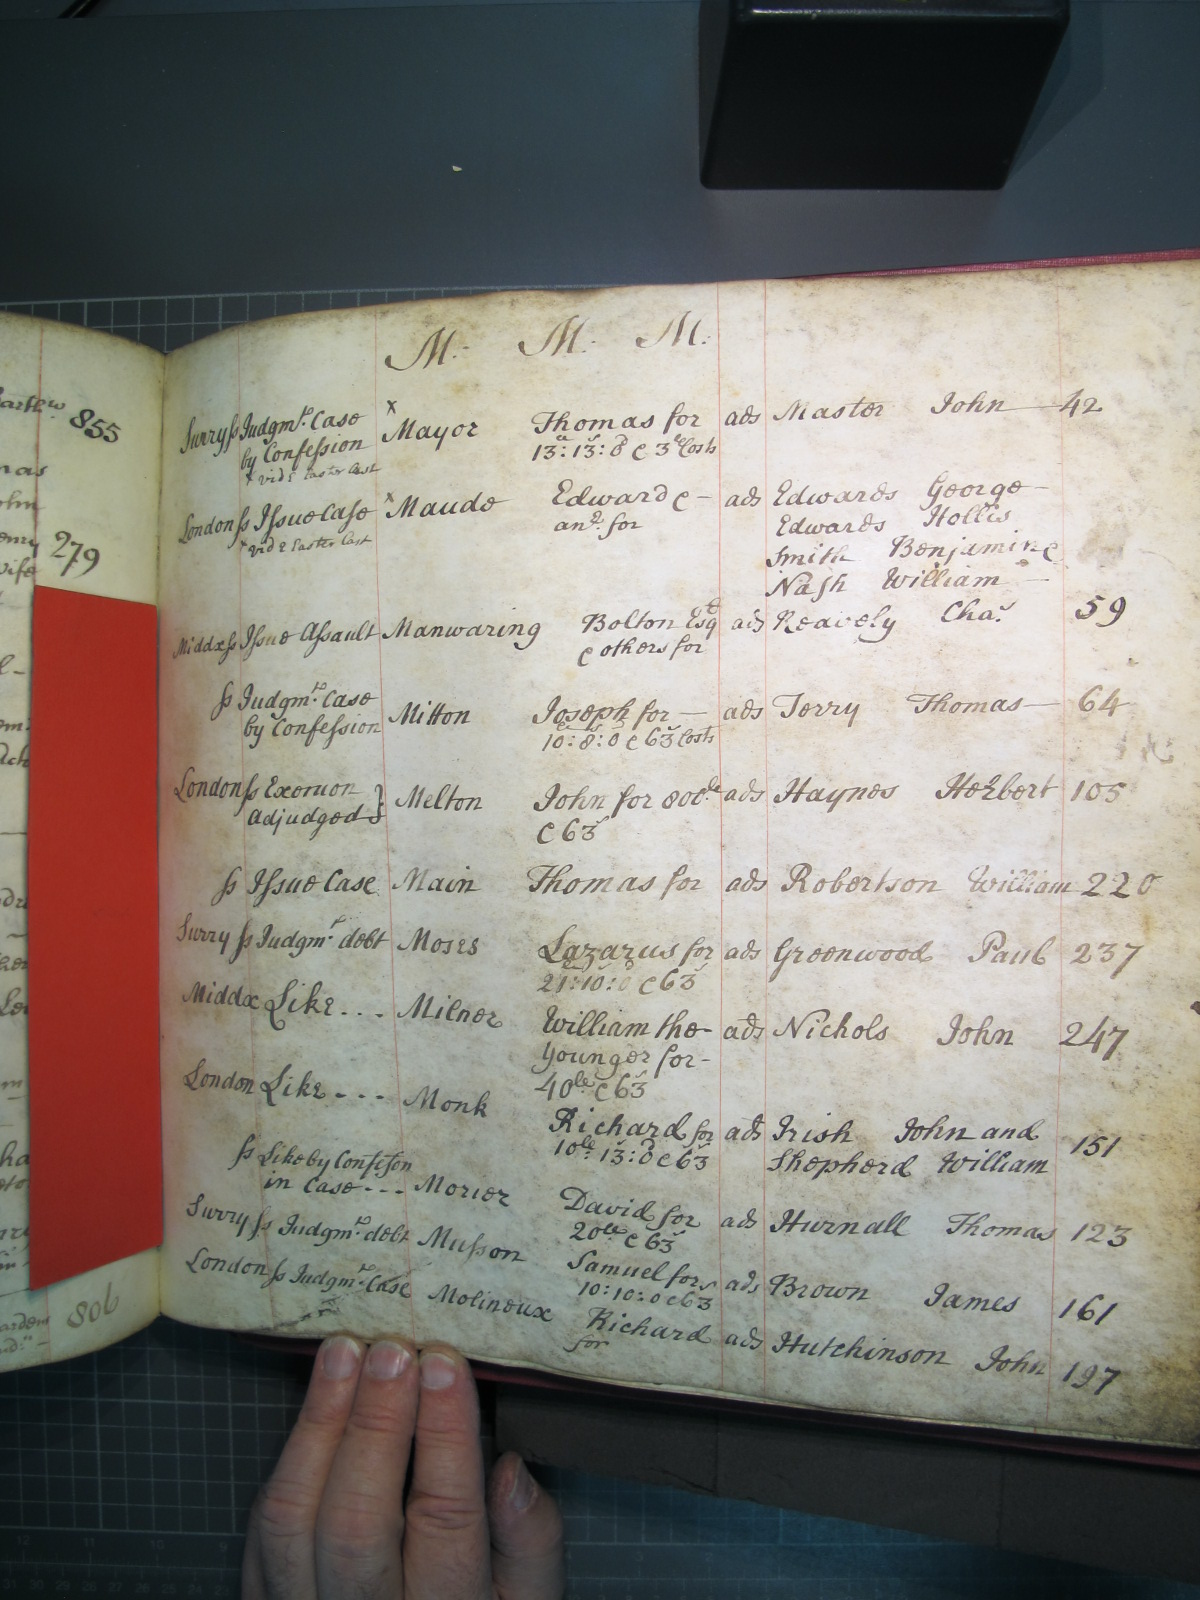 M. M. M.
Surry ss Judgmt. Case Mayor Thomas for ads Master John 42
by Confession 13: 13: 8 & 3 Costs
x vid e Easter last
London ss Issue Case x Maude Edward & ads Edwards George
x vid e Easter last anr. for Edwards Hollis
Smith Benjamin &
Nash William
Middx ss Issue Assault Manwaring Bolton Esq ads Reavely Chas. 59
& others for
ss Judgmt. Case Mitton Joseph for ads Terry Thomas 64
by Confession 10: 8: 0 & 63s Costs
London ss Exercion Melton John for 800le ads Haynes Herbert 105
adjudged & 63s
ss Issue Case Main Thomas for ads Robertson William 220
Surry ss Judgmt. debt Moses Lazarus for ads Greenwood Paul 237
21: 10: 0 & 63s
Middx Like Milner William the ads Nichols John 247
younger for
40le & 63s
London Like Monk Richard for ads Irish John and 151
10le: 13: 0 & 63s Shepherd William
ss Like by Confession
in Case Morier David for ads Hurnall Thomas 123
20le & 63s
Surry ss Judgmt. debt Musson Samuel for ads Brown James 161
10: 10: 0 & 63
London ss Judgmt. Case Molineux Richard ads Hutchinson John 197
for
855
279
Wife
806